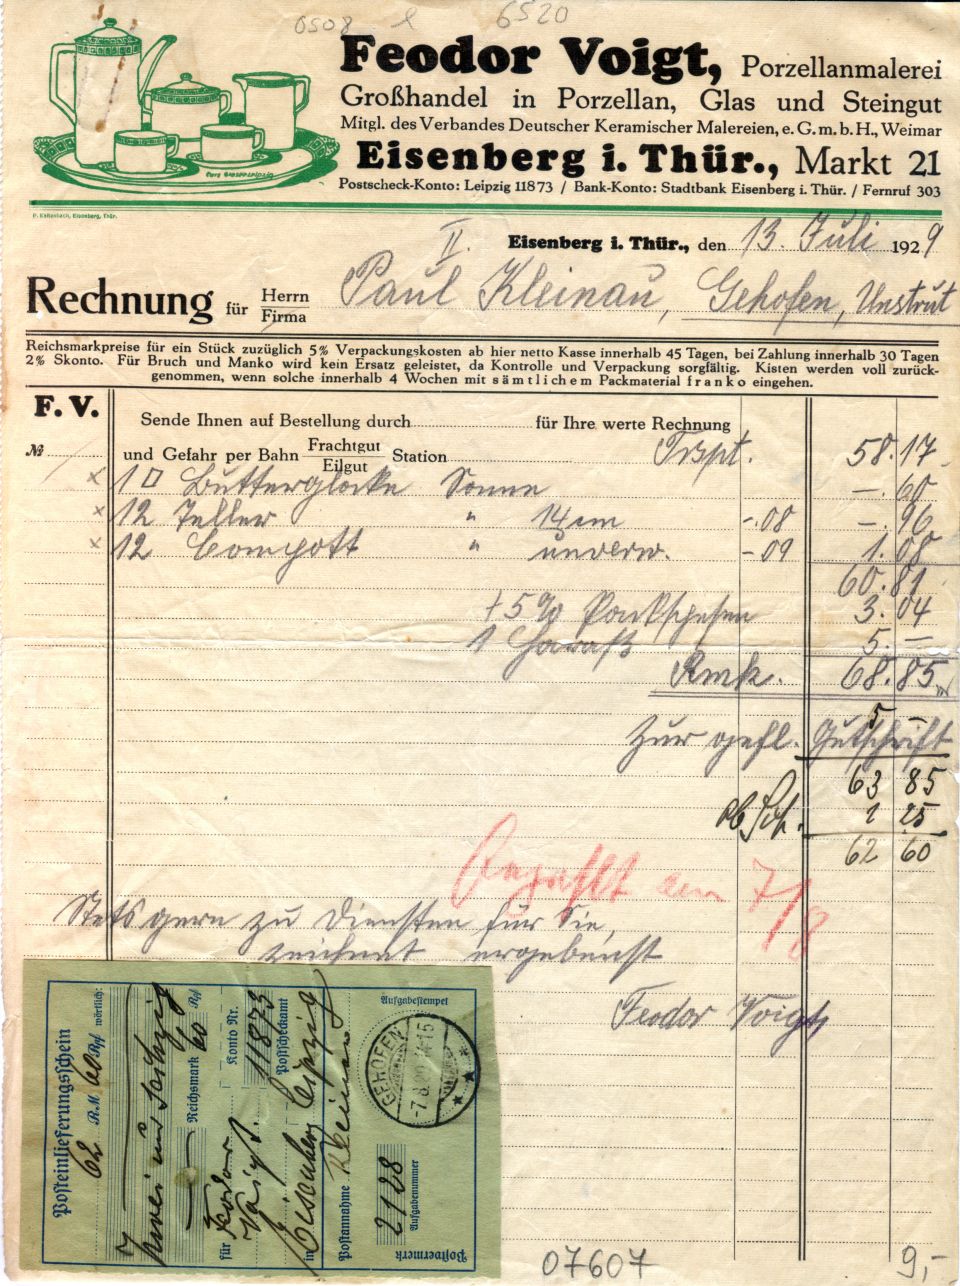 0508 6520
Feodor Voigt, Porzellanmalerei
Großhandel in Porzellan, Glas und Steingut
Mitgl. des Verbandes Deutscher Keramischer Malereien, e. G. m. b. H., Weimar
Eisenberg i. Thür., Markt 21
Postscheck-Konto: Leipzig 11873 / Bank-Konto: Stadtbank Eisenberg i. Thür. / Fernruf 303
P. Kaltenbach, Eisenberg, Thür.
II.
Eisenberg i. Thür., den 13. Juli 1929
Rechnung für Herrn Firma Paul Kleinau, Gehofen, Unstrut
Reichsmarkpreise für ein Stück zuzüglich 5% Verpackungskosten ab hier netto Kasse innerhalb 45 Tagen, bei Zahlung innerhalb 30 Tagen
2% Skonto. Für Bruch und Manko wird kein Ersatz geleistet, da Kontrolle und Verpackung sorgfältig. Kisten werden voll zurück-
genommen, wenn solche innerhalb 4 Wochen mit sämtlichem Packmaterial franko eingehen.
F. V.
Sende Ihnen auf Bestellung durch für Ihre werte Rechnung
№ und Gefahr per Bahn Frachtgut Eilgut Station Trspt. 58.17
× 1 □ Butterglocke Sonne —.60
× 12 Teller " 14 cm -.08 —.96
× 12 Compott " unverw. -09 1.08
60.81
+ 5% Packspesen 3.04
1 Haraß 5.—
Rmk. 68.85
5 —
Zur gefl. Gutschrift
63 85
1 25
62 60
Bezahlt am 7/8
Stets gern zu Diensten für Sie,
zeichnet ergebenst
Feodor Voigt
Posteinlieferungsschein
62 R.M. 60 Rpf wörtlich:
Zwei und sechzig
Reichsmark 60 Rpf
für Feodor Voigt.
Konto Nr. 11873
Postscheckamt Leipzig
in Eisenberg
Postannahme
Aufgabestempel
GEHOFEN
Aufgabenummer 2128
Postvermerk
07607
9,-